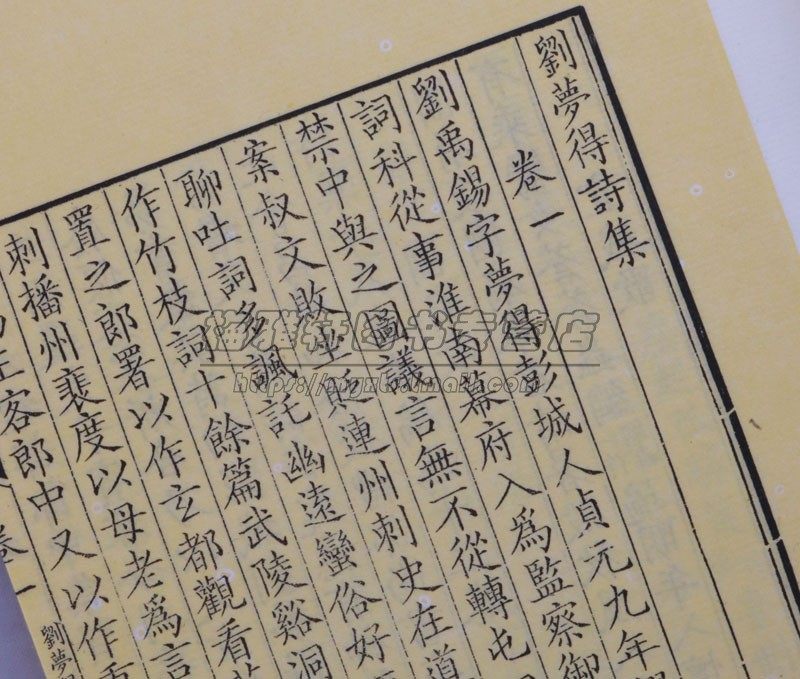 劉夢得詩集
卷一
劉禹錫字夢得彭城人貞元九年
詞科從事淮南幕府入爲監察御
禁中與之圖議言無不從轉屯
案叔文敗坐貶連州刺史在道
聊吐詞多諷託幽遠蠻俗好
作竹枝詞十餘篇武陵谿洞
置之郎署以作玄都觀看
刺播州裴度以母老爲言
客郎中又以作
卷一
劉夢
梅雅轩图书专营店